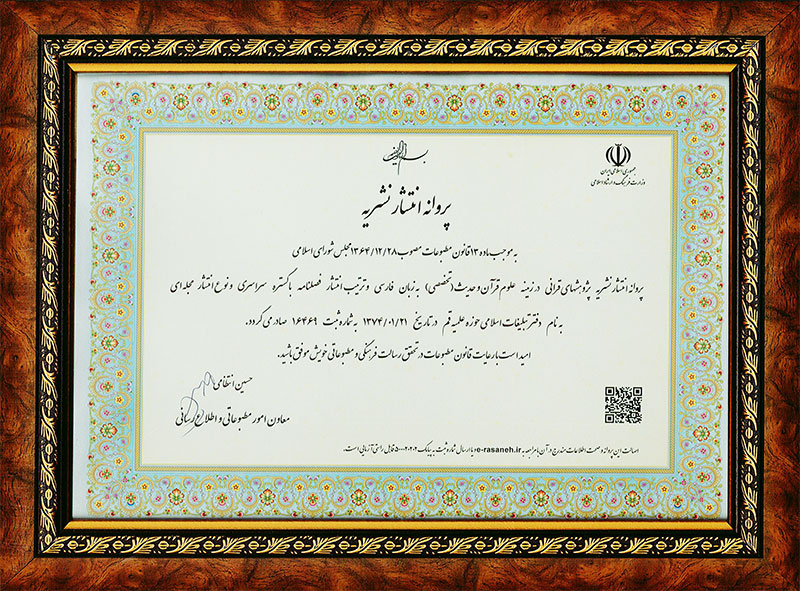 جمهوری اسلامی ایران
وزارت فرهنگ و ارشاد اسلامی
پروانه انتشار نشریه
به موجب ماده ۱۳ قانون مطبوعات مصوب ۱۳۶۴/۱۲/۲۸ مجلس شورای اسلامی
پروانه انتشار نشریه پژوهشهای قرآنی در زمینه علوم قرآن و حدیث (تخصصی) به زبان فارسی و ترتیب انتشار فصلنامه با گستره سراسری و نوع انتشار مجله ای
به نام دفتر تبلیغات اسلامی حوزه علمیه قم در تاریخ ۱۳۷۴/۰۱/۲۱ به شماره ثبت ۱۶۴۶۹ صادر می گردد.
امید است با رعایت قانون مطبوعات در تحقق رسالت فرهنگی و مطبوعاتی خویش موفق باشید.
حسین انتظامی
معاون امور مطبوعاتی و اطلاع رسانی
اصالت این پروانه و صحت اطلاعات مندرج در آن با مراجعه به e-rasaneh.ir و یا ارسال شماره ثبت به پیامک ۵۰۰۰۲۰۲۰۲ قابل راستی آزمایی است.